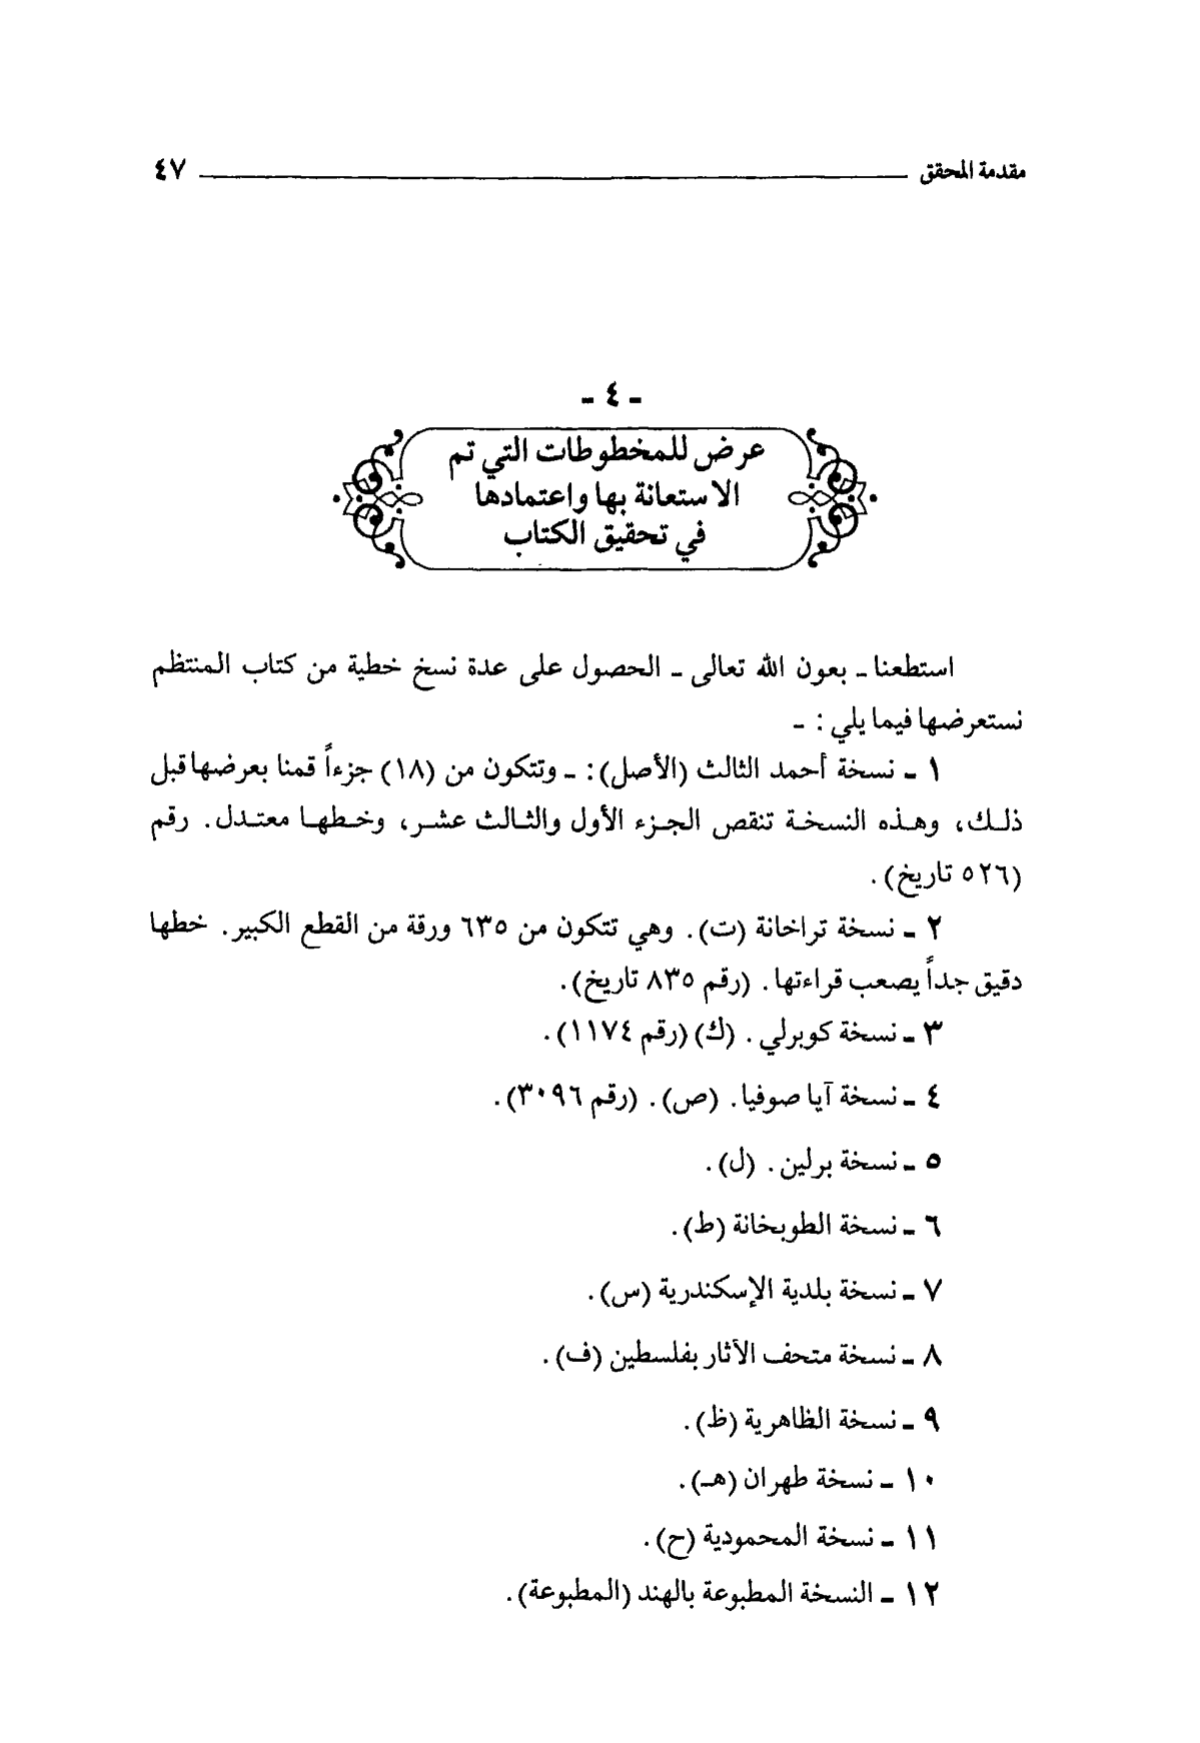 مقدمة المحقق ٤٧
- ٤ -
عرض للمخطوطات التي تم
الاستعانة بها واعتمادها
في تحقيق الكتاب
استطعنا ـ بعون الله تعالى ـ الحصول على عدة نسخ خطية من كتاب المنتظم
نستعرضها فيما يلي : ـ
١ ـ نسخة أحمد الثالث (الأصل): ـ وتتكون من (١٨) جزءاً قمنا بعرضها قبل
ذلك، وهذه النسخة تنقص الجزء الأول والثالث عشر، وخطها معتدل. رقم
(٥٢٦ تاريخ).
٢ ـ نسخة تراخانة (ت). وهي تتكون من ٦٣٥ ورقة من القطع الكبير. خطها
دقيق جداً يصعب قراءتها. (رقم ٨٣٥ تاريخ).
٣ ـ نسخة كوبرلي. (ك) (رقم ١١٧٤).
٤ ـ نسخة آيا صوفيا. (ص). (رقم ٣٠٩٦).
٥ ـ نسخة برلين. (ل).
٦ ـ نسخة الطوبخانة (ط).
٧ ـ نسخة بلدية الإسكندرية (س).
٨ ـ نسخة متحف الآثار بفلسطين (ف).
٩ ـ نسخة الظاهرية (ظ).
١٠ ـ نسخة طهران (هـ).
١١ ـ نسخة المحمودية (ح).
١٢ ـ النسخة المطبوعة بالهند (المطبوعة).